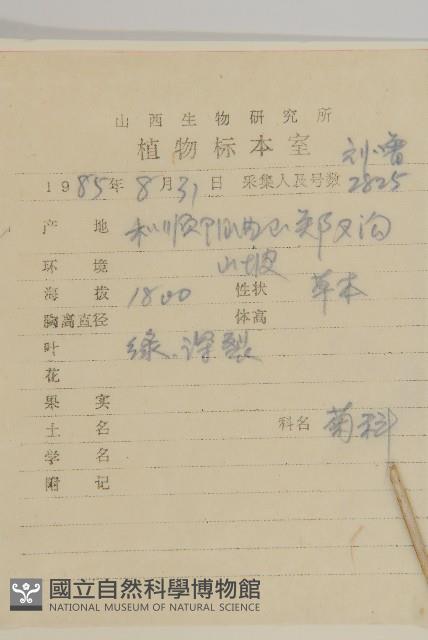 山西生物研究所
植物标本室
刘
1985年8月31日 采集人及号数 2825
产地 和顺阳
环境 山坡
海拔 1800 性状 草本
胸高直径 体高
叶 绿、深裂
花
果实
土名 科名 菊科
学名
附记
國立自然科學博物館
NATIONAL MUSEUM OF NATURAL SCIENCE